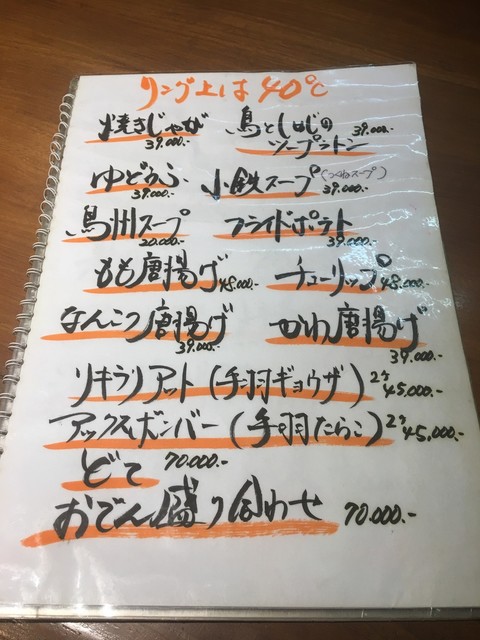 リング上は40℃
焼きじゃが 39.000.-
鳥としめじのスープシトン 39.000.-
ゆどうふ 39.000.-
小鉄スープ(つくねスープ) 39.000.-
鳥州スープ 20.000.-
フライドポテト 39.000.-
もも唐揚げ 48.000.-
チューリップ 48.000.-
なんこつ唐揚げ 39.000.-
かわ唐揚げ 39.000.-
リキラリアット(手羽ギョウザ) 2ケ 45,000.-
アックスボンバー(手羽たらこ) 2ケ 45,000.-
どて 70.000.-
おでん盛り合わせ 70.000.-